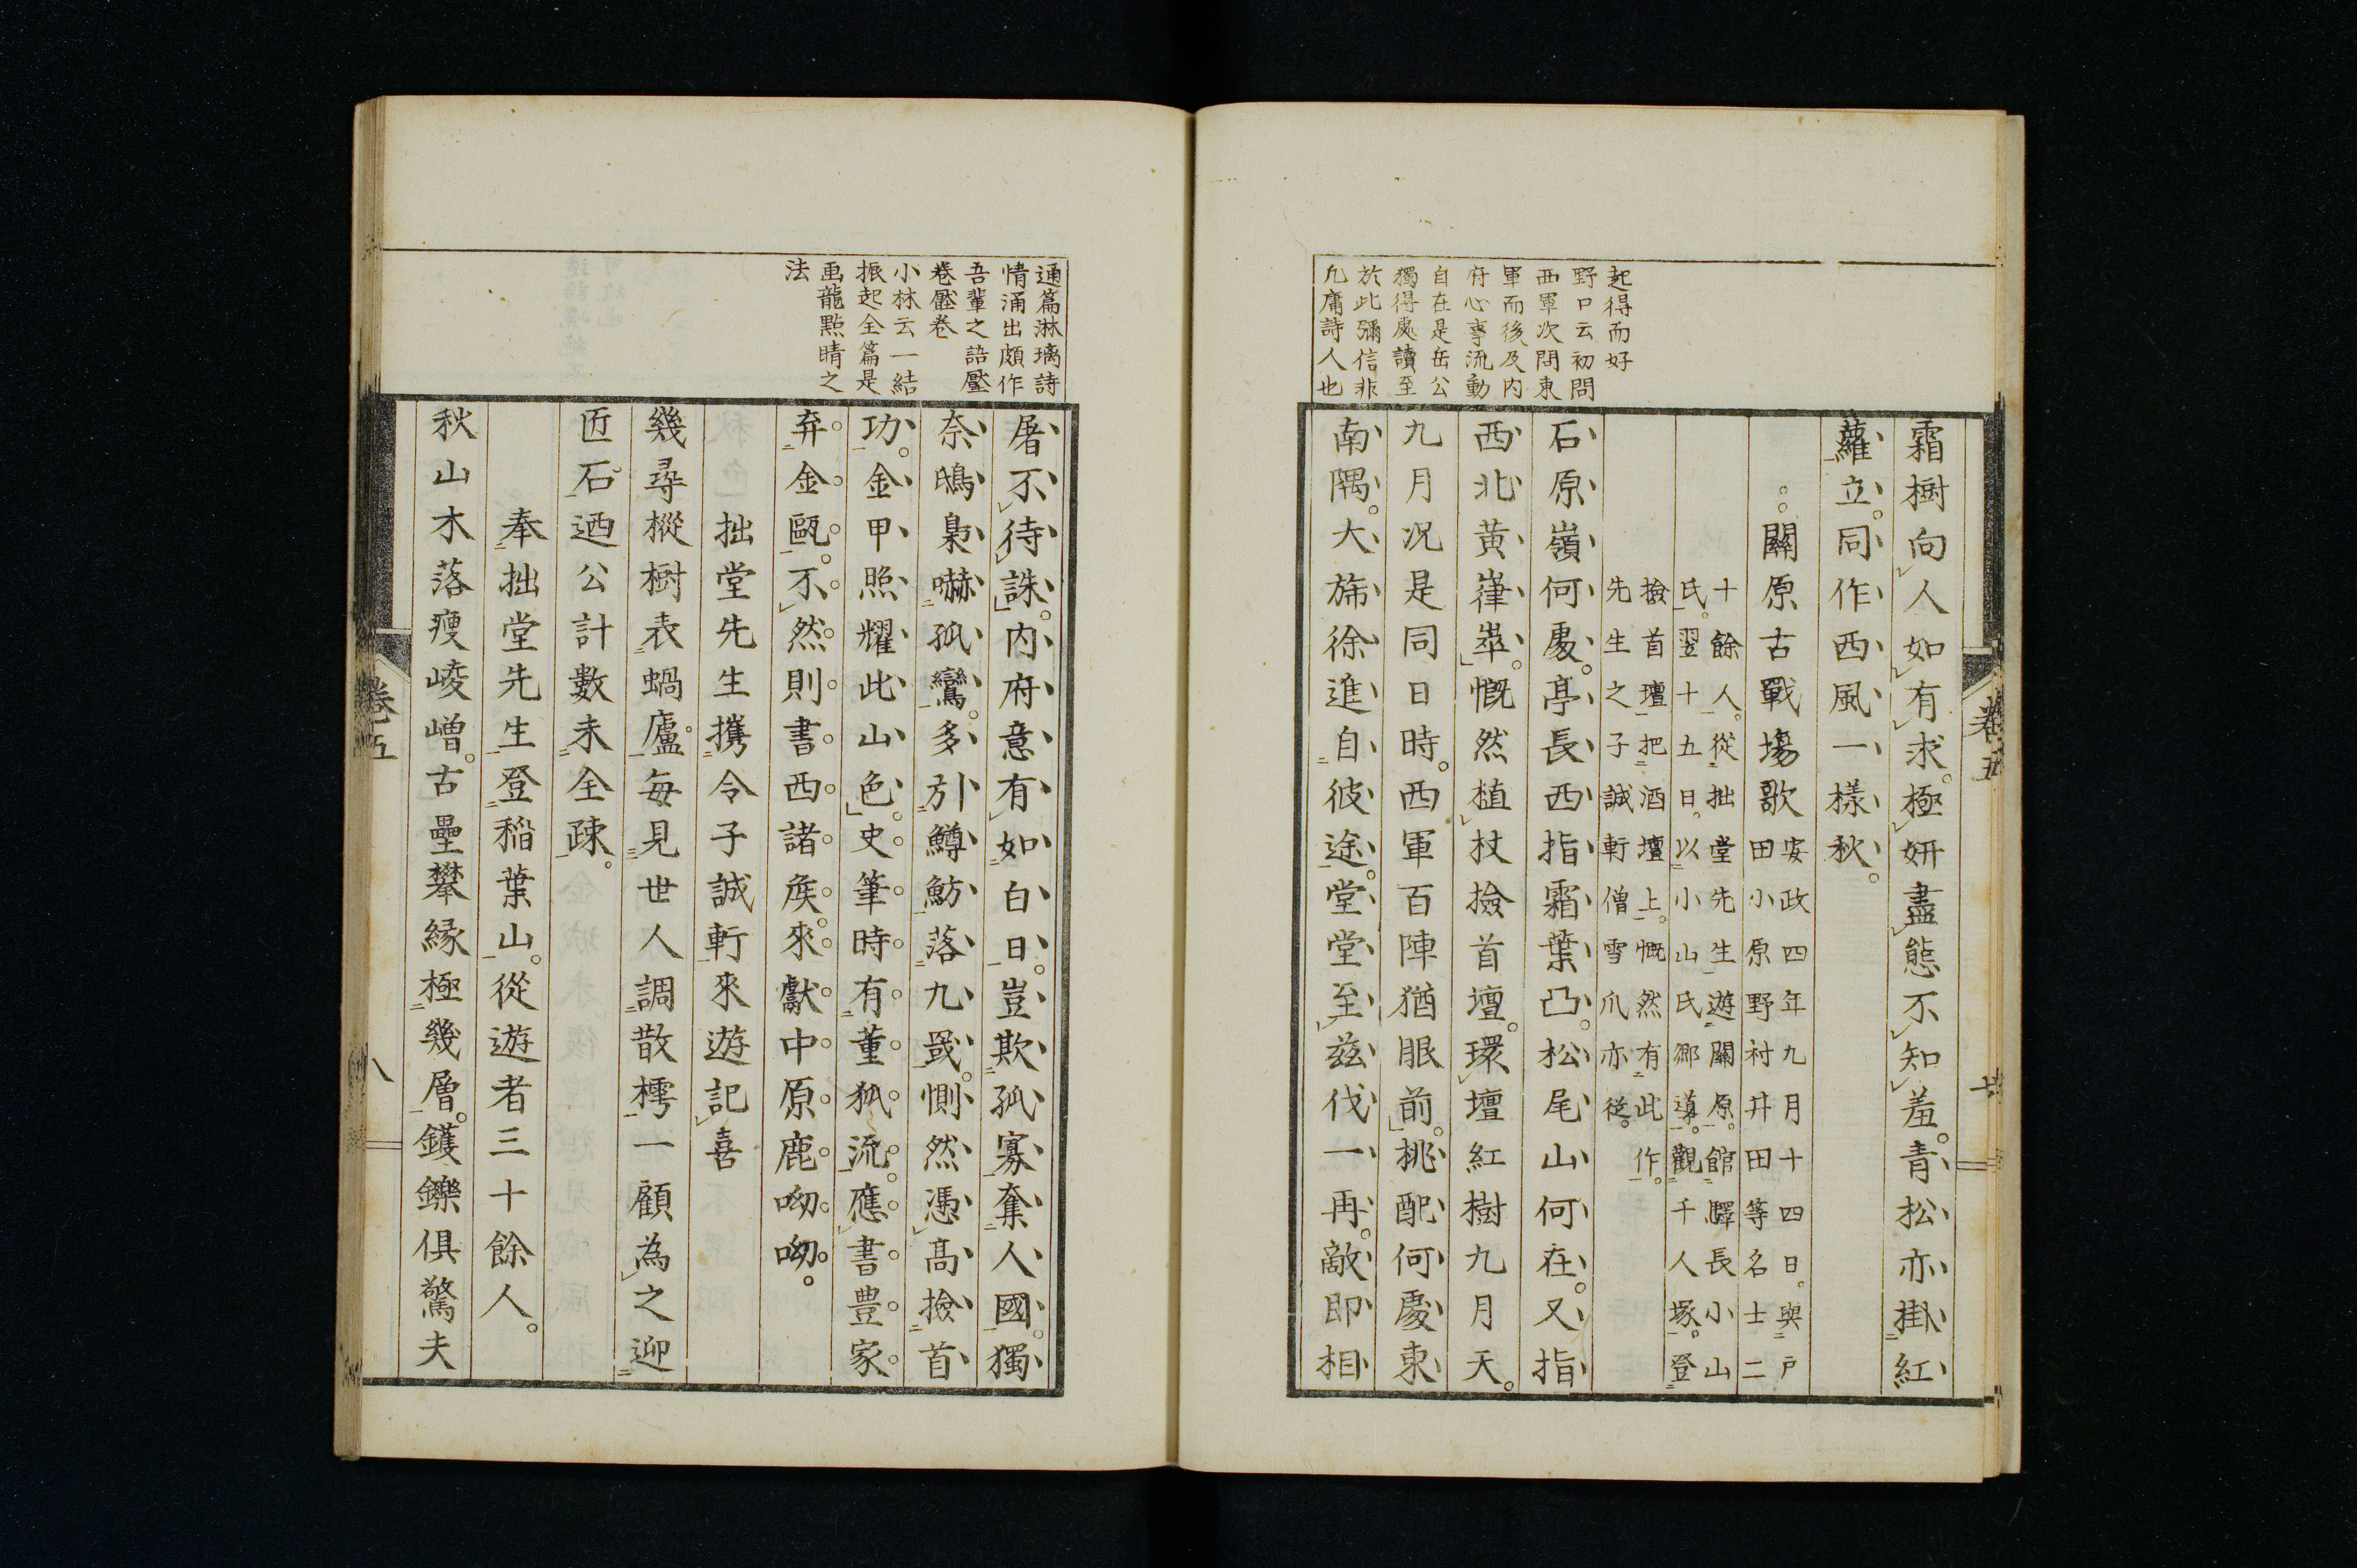 起得而好
野口云初問
西軍次問東
軍而後及内
府心事流動
自在是岳公
獨得處讀至
於此彌信非
凡庸詩人也
霜樹向人如有求。極妍盡態不知羞。青松亦掛紅
蘿立。同作西風一樣秋。
關原古戰場歌
安政四年九月十四日。與戸
田小原野村井田等名士二
十餘人。從拙堂先生遊關原。館驛長小山
氏。翌十五日。以小山氏鄉導。觀千人塚。登
撿首壇把酒壇上。慨然有此作。
先生之子誠軒僧雪爪亦從。
石原嶺何處。亭長西指霜葉凸。松尾山何在。又指
西北黃嵂崒。慨然植杖撿首壇。環壇紅樹九月天。
九月況是同日時。西軍百陣猶眼前。桃配何處東
南隅。大旆徐進自彼途。堂堂至茲伐一再。敵即相
卷五
七
通篇淋璃詩
情涌出頗作
吾輩之語壓
卷壓卷
小林云一結
振起全篇是
画龍點晴之
法
屠不待誅。内府意有如白日。豈欺孤寡奪人國。獨
奈鴟梟嚇孤鸞。多引鱒魴落九罭。惻然憑高撿首
功。金甲照耀此山色。史筆時有董狐流。應書豊家
弃金甌。不然則書西諸侯。來獻中原鹿呦呦。
拙堂先生攜令子誠軒來遊記喜
幾尋樅樹表蝸廬。每見世人調散樗一顧為之迎
匠石迺公計數未全疎。
奉拙堂先生登稲葉山。從遊者三十餘人。
秋山木落瘦崚嶒。古壘攀緣極幾層。钁鑠俱驚夫
卷五
八